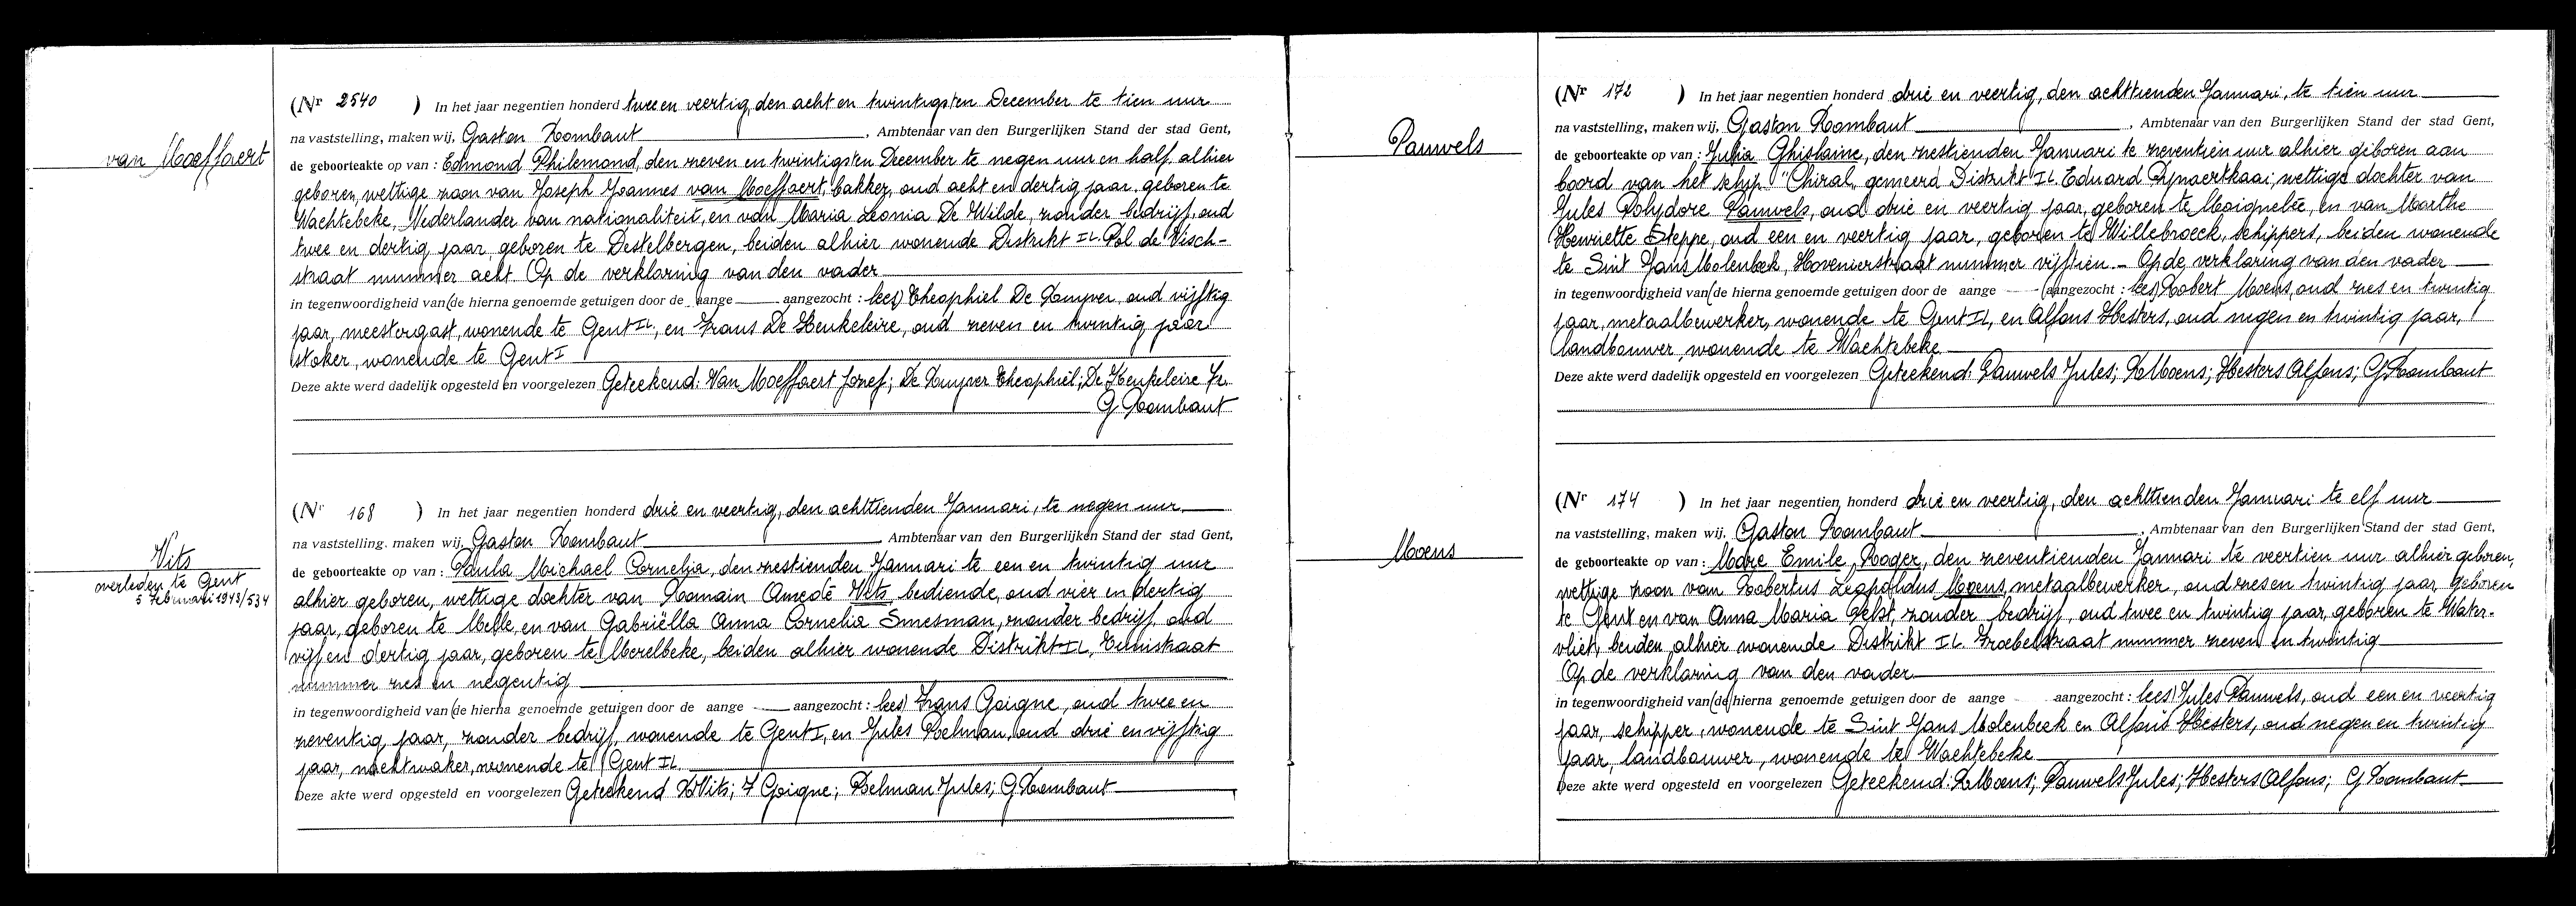 van Moeffaert
(Nr 2540 ) In het jaar negentien honderd twee en veertig, den acht en twintigsten December te tien uur
na vaststelling, maken wij, Gaston Rombaut, Ambtenaar van den Burgerlijken Stand der stad Gent,
de geboorteakte op van : Edmond Philemond, den zeven en twintigsten December te negen uur en half, alhier
geboren, wettige zoon van Joseph Joannes van Moeffaert, bakker, oud acht en dertig jaar, geboren te
Wachtebeke, Nederlander van nationaliteit, en van Maria Leonia De Wilde, zonder bedrijf, oud
twee en dertig jaar, geboren te Destelbergen, beiden alhier wonende Distrikt II. Pol de Visch-
straat nummer acht. Op de verklaring van den vader
in tegenwoordigheid van (de hierna genoemde getuigen door de aange aangezocht : lees) Theophiel De Kuyver, oud vijftig
jaar, meestergast, wonende te Gent II., en Frans De Keukeleire, oud zeven en twintig jaar
stoker, wonende te Gent I
Deze akte werd dadelijk opgesteld en voorgelezen Geteekend: Van Moeffaert Jozef; De Kuyver Theophiel; De Keukeleire Fr.
G Rombaut
Vits
overleden te Gent
5 Februari 1943/534
(Nr 168 ) In het jaar negentien honderd drie en veertig, den achttienden Januari, te negen uur
na vaststelling. maken wij, Gaston Rombaut, Ambtenaar van den Burgerlijken Stand der stad Gent,
de geboorteakte op van : Paula Michael Cornelia, den zestienden Januari te een en twintig uur
alhier geboren, wettige dochter van Romain Amedé Vits, bediende, oud vier en dertig
jaar, geboren te Melle, en van Gabriëlla Anna Cornelia Smesman, zonder bedrijf, oud
vijf en dertig jaar, geboren te Merelbeke, beiden alhier wonende Distrikt II, Tuinstraat
nummer zes en negentig
in tegenwoordigheid van (de hierna genoemde getuigen door de aange aangezocht : lees) Frans Goigne, oud twee en
zeventig jaar, zonder bedrijf, wonende te Gent I, en Jules Poelman, oud drie en vijftig
jaar, nachtwaker, wonende te Gent II.
Deze akte werd opgesteld en voorgelezen Geteekend R Vits; F Goigne; Poelman Jules; G Rombaut
Pauwels
(Nr 172 ) In het jaar negentien honderd drie en veertig, den achttienden Januari, te tien uur
na vaststelling, maken wij, Gaston Rombaut, Ambtenaar van den Burgerlijken Stand der stad Gent,
de geboorteakte op van : Julia Ghislaine, den zestienden Januari te zeventien uur alhier geboren aan
boord van het schip "Chiral, gemeerd Distrikt II. Eduard Pynaertkaai, wettige dochter van
Jules Polydore Pauwels, oud drie en veertig jaar, geboren te Moignelée, en van Marthe
Henriette Steppe, oud een en veertig jaar, geboren te Willebroeck, schippers, beiden wonende
te Sint Jans Molenbeek, Hovenierstraat nummer vijftien. – Op de verklaring van den vader
in tegenwoordigheid van (de hierna genoemde getuigen door de aange aangezocht : lees) Robert Moens, oud zes en twintig
jaar, metaalbewerker, wonende te Gent II, en Alfons Hesters, oud negen en twintig jaar,
landbouwer, wonende te Wachtebeke
Deze akte werd dadelijk opgesteld en voorgelezen Geteekend: Pauwels Jules; R Moens; Hesters Alfons; G Rombaut
Moens
(Nr 174 ) In het jaar negentien honderd drie en veertig, den achttienden Januari te elf uur
na vaststelling, maken wij, Gaston Rombaut, Ambtenaar van den Burgerlijken Stand der stad Gent,
de geboorteakte op van : Marc Emile, Roger, den zeventienden Januari te veertien uur alhier geboren,
wettige zoon van Robertus Leopoldus Moens, metaalbewerker, oud zes en twintig jaar, geboren
te Gent en van Anna Maria Pelst, zonder bedrijf, oud twee en twintig jaar, geboren te Water-
vliet, beiden alhier wonende Distrikt II. Froebelstraat nummer zeven en twintig
Op de verklaring van den vader
in tegenwoordigheid van (de hierna genoemde getuigen door de aange aangezocht : lees) Jules Pauwels, oud een en veertig
jaar, schipper, wonende te Sint Jans Molenbeek en Alfons Hesters, oud negen en twintig
jaar, landbouwer, wonende te Wachtebeke
Deze akte werd opgesteld en voorgelezen Geteekend: R Moens; Pauwels Jules; Hesters Alfons; G Rombaut